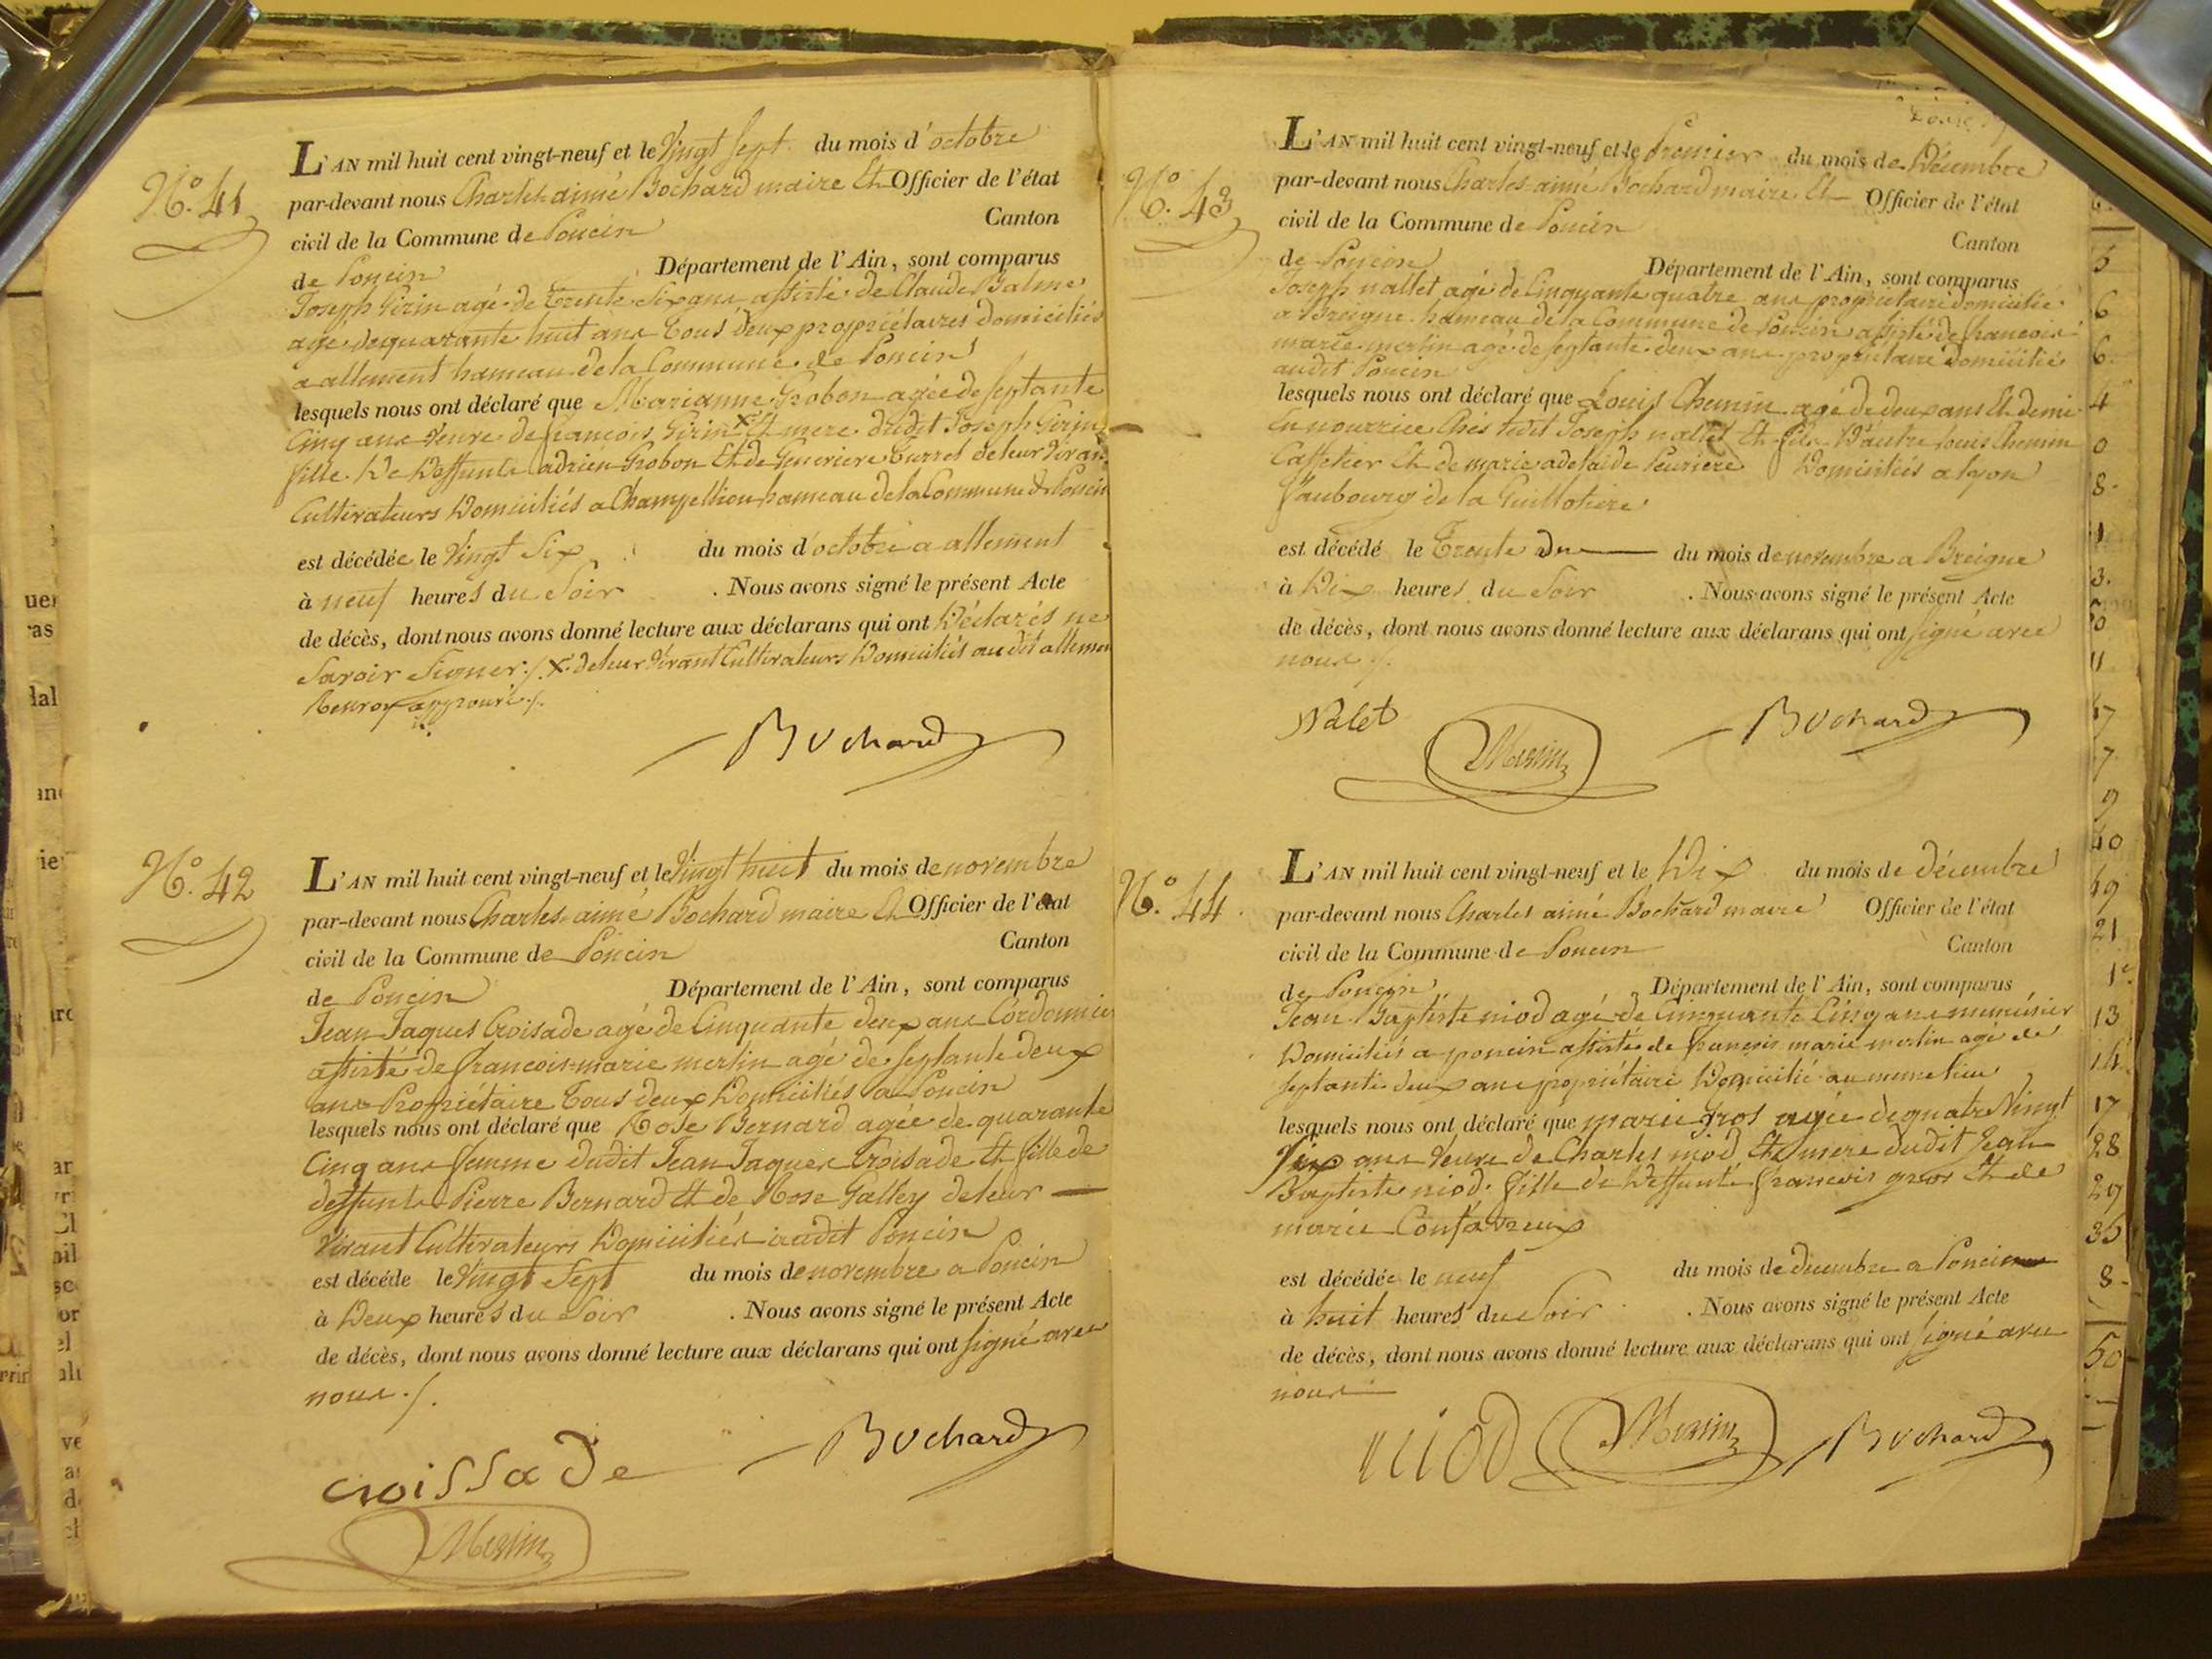 N.º 41
L'AN mil huit cent vingt-neuf et le Vingt sept du mois d'octobre
par-devant nous Charles aimé Bochard maire Et Officier de l'état
civil de la Commune de Poncin Canton
de Poncin Département de l'Ain, sont comparus
Joseph Girin agé de Trente Six ans assisté de Claude Balme
agé de quarante huit ans Tous deux propriétaires domiciliés
a allement hameau de la Commune de Poncin
lesquels nous ont déclaré que Marianne Grobon agée de septante
Cinq ans Veuve de francois Girin X Et mere dudit Joseph Girin
fille De Deffunts adrien Grobon Et de Genevieve Turrel de leur Vivant
Cultivateurs Domiciliés a Champeillon hameau de la Commune de Poncin
est décédée le Vingt Six du mois d'octobre a allement
à neuf heures du Soir . Nous avons signé le présent Acte
de décès, dont nous avons donné lecture aux déclarans qui ont Déclarés ne
Savoir Signer ./. X de leur Vivant Cultivateurs Domiciliés audit allement
Renvoy approuvé ./.
Bochard
N.º 42
L'AN mil huit cent vingt-neuf et le Vingt huit du mois de novembre
par-devant nous Charles aimé Bochard maire Et Officier de l'état
civil de la Commune de Poncin Canton
de Poncin Département de l'Ain, sont comparus
Jean Jaques Croisade agé de Cinquante deux ans Cordonnier
assisté de francois-marie merlin agé de septante deux
ans Propriétaire Tous deux Domiciliés a Poncin
lesquels nous ont déclaré que Rose Bernard agée de quarante
Cinq ans femme dudit Jean Jaques Croisade Et fille de
deffunts Pierre Bernard Et de Rose Galley de leur
Vivant Cultivateurs Domiciliés audit Poncin
est décédé le Vingt Sept du mois de novembre a Poncin
à Deux heures du Soir . Nous avons signé le présent Acte
de décès, dont nous avons donné lecture aux déclarans qui ont signé avec
nous ./.
croissade Bochard
Merlin
N.º 43
L'AN mil huit cent vingt-neuf et le Premier du mois de Décembre
par-devant nous Charles aimé Bochard maire Et Officier de l'état
civil de la Commune de Poncin Canton
de Poncin Département de l'Ain, sont comparus
Joseph nallet agé de Cinquante quatre ans propriétaire domicilié
a Breigne hameau de la Commune de Poncin assisté de francois
marie merlin agé de septante deux ans propriétaire domicilié
audit Poncin
lesquels nous ont déclaré que Louis Chemin agé de deux ans Et demi
En nourrice Chés ledit Joseph nallet Et fils D'autre Louis Chemin
Caffetier Et de marie adelaide Domiciliés a lyon
faubourg de la Guillotiere
est décédé le Trente du mois de novembre a Breigne
à Dix heures du Soir . Nous avons signé le présent Acte
de décès, dont nous avons donné lecture aux déclarans qui ont signé avec
nous ./.
Nalet Merlin Bochard
N.º 44
L'AN mil huit cent vingt-neuf et le Dix du mois de décembre
par-devant nous Charles aimé Bochard maire Officier de l'état
civil de la Commune de Poncin Canton
de Poncin Département de l'Ain, sont comparus
Jean Baptiste niod agé de Cinquante Cinq ans menuisier
Domiciliés a poncin assistés de francois marie merlin agé de
septante deux ans propriétaire Domicilié au meme lieu
lesquels nous ont déclaré que marie Gros agée de quatre Vingt
Six ans Veuve de Charles niod Et mere dudit Jean
Baptiste niod fille de Deffunts francois gros Et de
marie Confavreux
est décédée le neuf du mois de décembre a Poncin
à huit heures du Soir . Nous avons signé le présent Acte
de décès, dont nous avons donné lecture aux déclarans qui ont signé avec
nous
niod Merlin Bochard